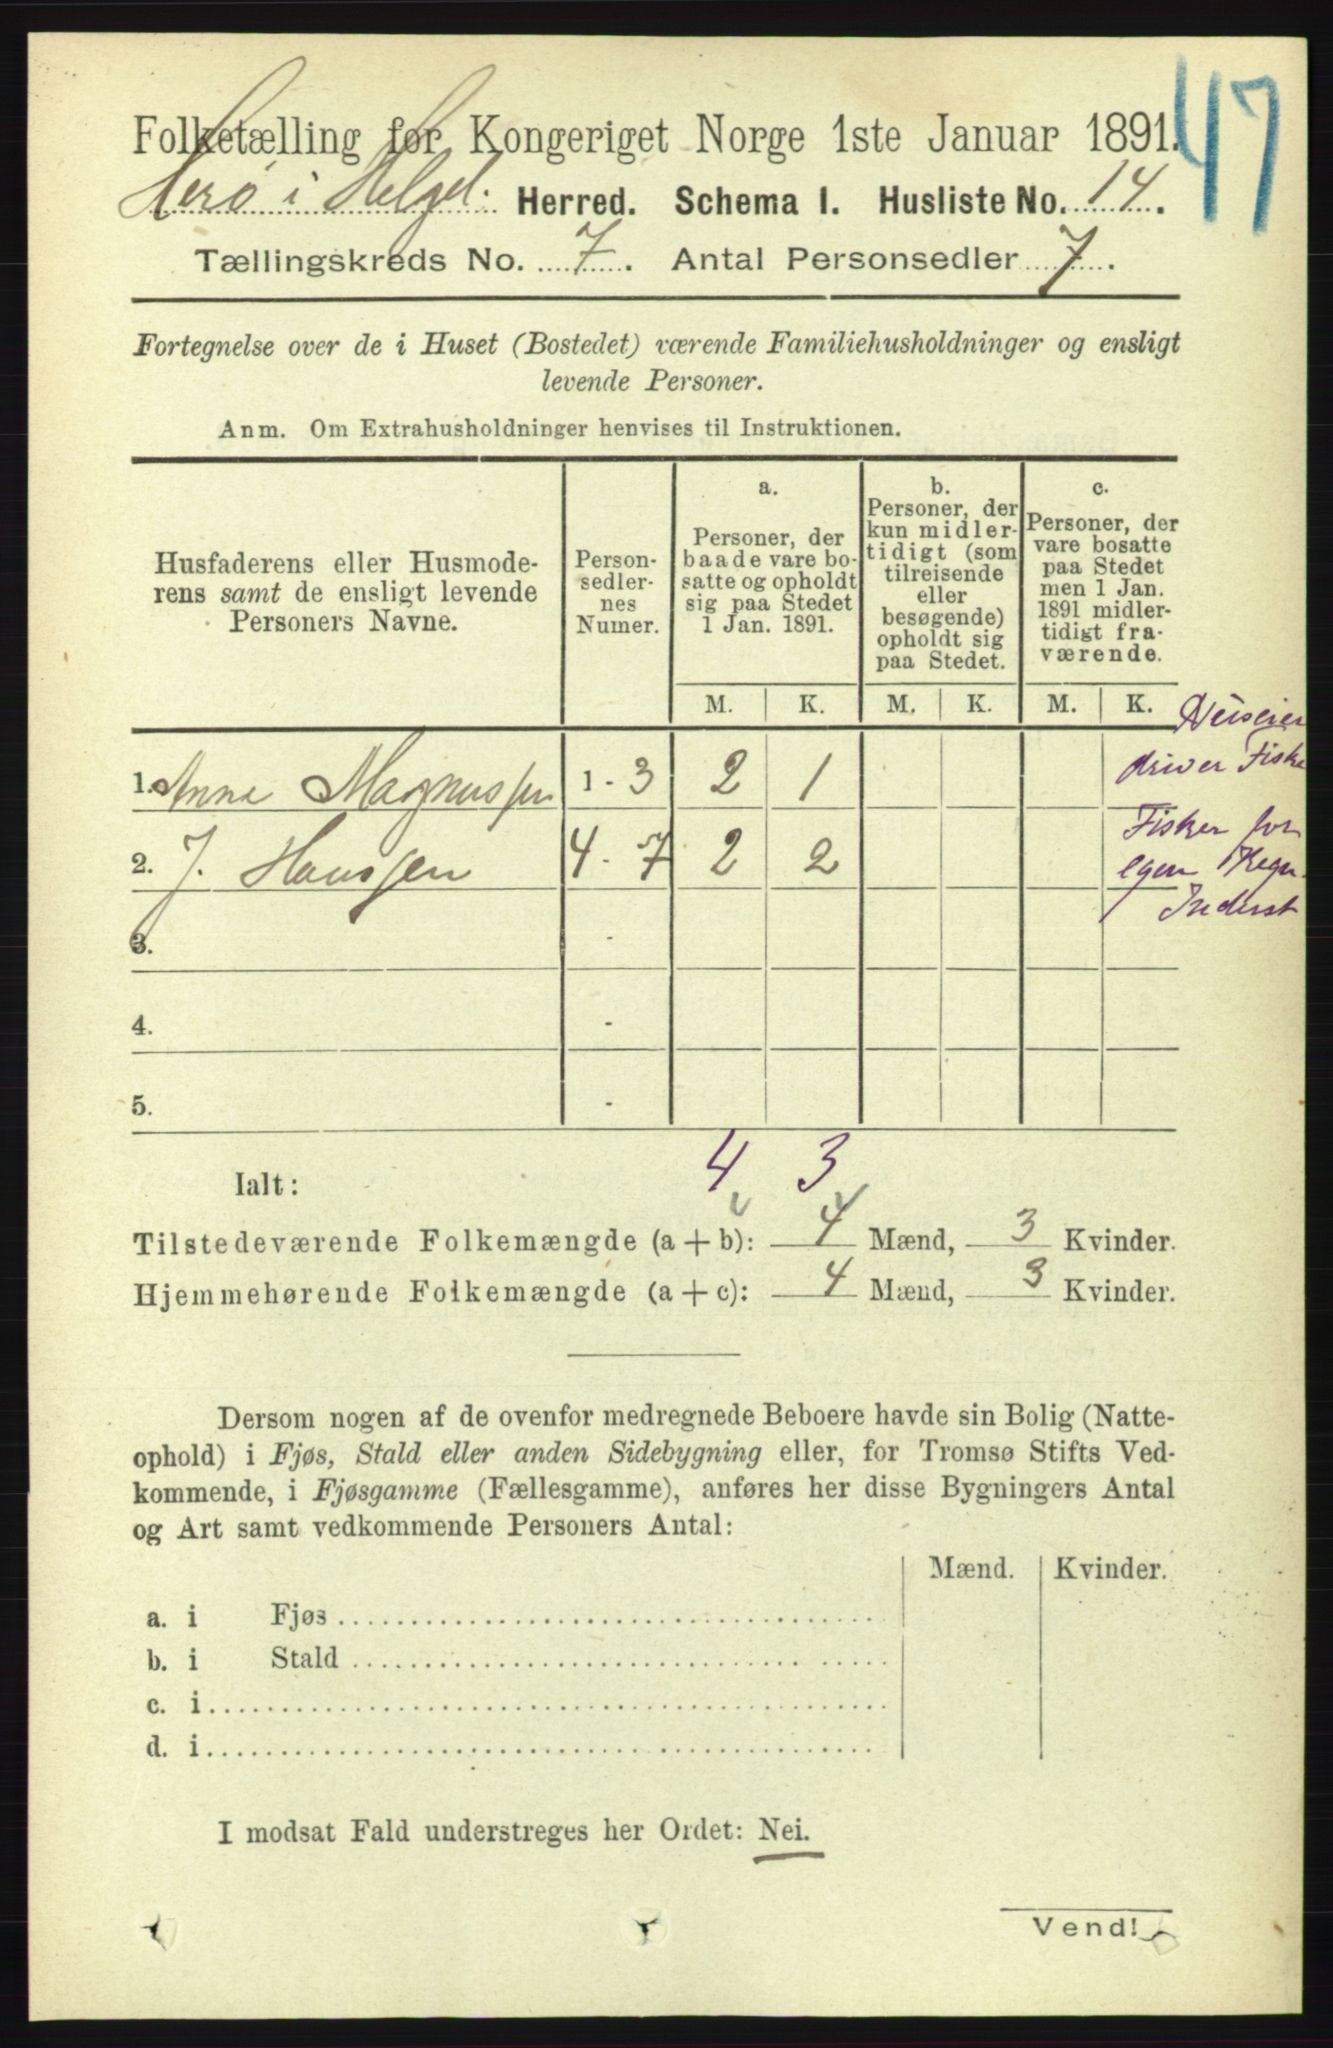 47
Folketælling for Kongeriget Norge 1ste Januar 1891.
Herø i Helgel. Herred. Schema I. Husliste No. 14.
Tællingskreds No. 7. Antal Personsedler 7.
Fortegnelse over de i Huset (Bostedet) værende Familiehusholdninger og ensligt
levende Personer.
Anm. Om Extrahusholdninger henvises til Instruktionen.
Husfaderens eller Husmode-
rens samt de ensligt levende
Personers Navne.
Person-
sedler-
nes
Numer.
a.
Personer, der
baade vare bo-
satte og opholdt
sig paa Stedet
1 Jan. 1891.
b.
Personer, der
kun midler-
tidigt (som
tilreisende
eller
besøgende)
opholdt sig
paa Stedet.
c.
Personer, der
vare bosatte
paa Stedet
men 1 Jan.
1891 midler-
tidigt fra-
værende.
M. K. M. K. M. K.
1. Anne Magnussen 1 - 3 2 1
driver Fiske
2. J. Hanssen 4 - 7 2 2
Fisker for
egen Regn.
Inderst
3. -
4. -
5. -
4 3
Ialt:
Tilstedeværende Folkemængde (a + b): 4 Mænd, 3 Kvinder.
Hjemmehørende Folkemængde (a + c): 4 Mænd, 3 Kvinder.
Dersom nogen af de ovenfor medregnede Beboere havde sin Bolig (Natte-
ophold) i Fjøs, Stald eller anden Sidebygning eller, for Tromsø Stifts Ved-
kommende, i Fjøsgamme (Fællesgamme), anføres her disse Bygningers Antal
og Art samt vedkommende Personers Antal:
Mænd. Kvinder.
a. i Fjøs
b. i Stald
c. i
d. i
I modsat Fald understreges her Ordet: Nei.
Vend!